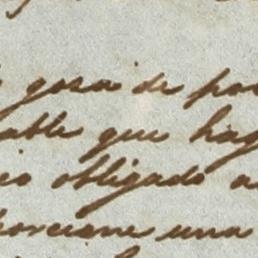 goza de po
able que hag
io obligado a
porcione una